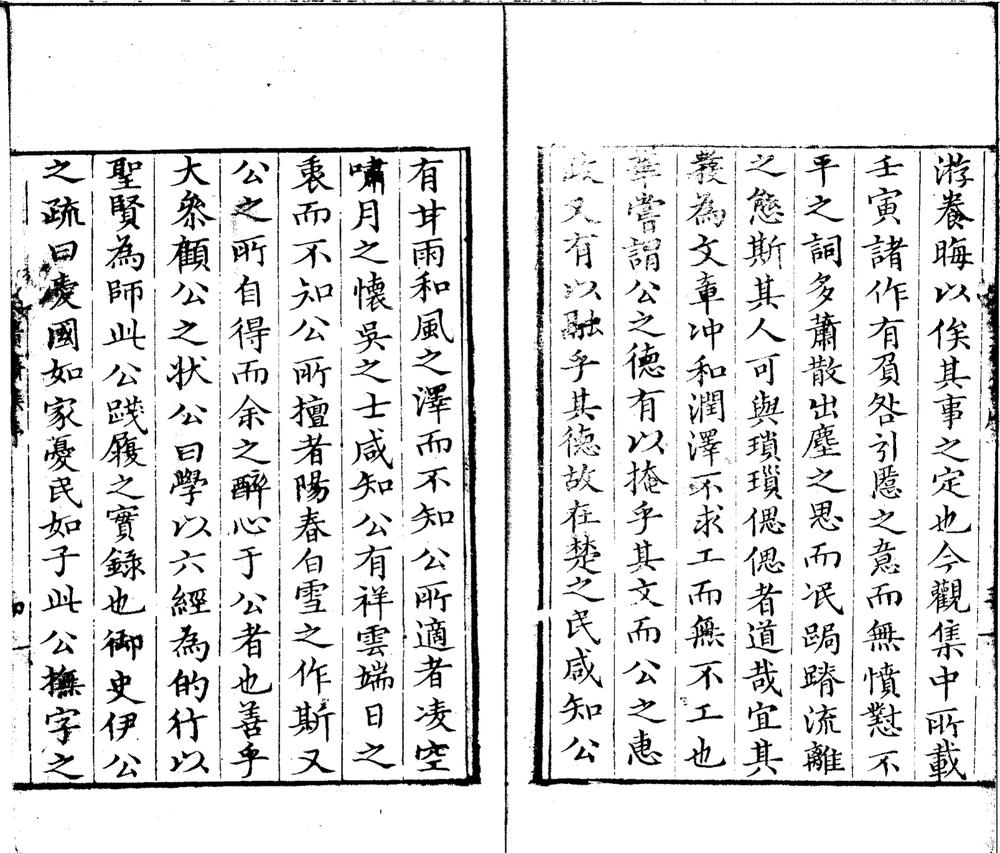 游養晦以俟其事之定也今觀集中所載
壬寅諸作有負咎引慝之意而無憤懟不
平之詞多蕭散出塵之思而泯跼蹐流離
之態斯其人可與瑣瑣偲偲者道哉宜其
發為文章冲和潤澤不求工而無不工也
華嘗謂公之德有以掩乎其文而公之惠
政又有以融乎其德故在楚之民咸知公
有甘雨和風之澤而不知公所適者凌空
嘯月之懷吳之士咸知公有祥雲端日之
表而不知公所擅者陽春白雪之作斯又
公之所自得而余之醉心于公者也善乎
大叅顧公之状公曰學以六經為的行以
聖賢為師此公踐履之實錄也御史伊公
之疏曰憂國如家憂民如子此公撫字之